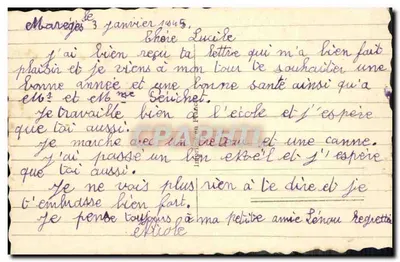 le 3 janvier 1945.
Chère Lucile
J'ai bien reçu ta lettre qui m'a bien fait
plaisir et je viens à mon tour te souhaiter une
bonne année et une bonne santé ainsi qu'a
Mr et Mme
Je travaille bien à l'école et j'espère
que toi aussi.
Je marche avec un et une canne.
J'ai passé un bon et j'espère
que toi aussi.
Je ne vais plus rien à te dire et je
t'embrasse bien fort.
Je pense toujours à ma petite amie
CPARAMA